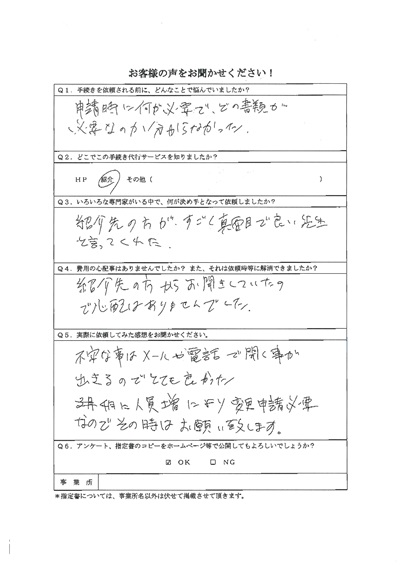 お客様の声をお聞かせください！
Q1．手続きを依頼される前に、どんなことで悩んでいましたか？
申請時に何が必要で、どの書類が
必要なのか分からなかった。
Q2．どこでこの手続き代行サービスを知りましたか？
HP 紹介 その他（ ）
Q3．いろいろな専門家がいる中で、何が決め手となって依頼しましたか？
紹介先の方が、すごく真面目で良い先生
と言ってくれた。
Q4．費用の心配事はありませんでしたか？また、それは依頼時等に解消できましたか？
紹介先の方からお聞きしていたの
で心配はありませんでした。
Q5．実際に依頼してみた感想をお聞かせください。
不安な事はメールや電話で聞く事が
出来るのでとても良かった
4月に人員増により変更申請必要
なのでその時はお願い致します。
Q6．アンケート、指定書のコピーをホームページ等で公開してもよろしいでしょうか？
☑ OK □ NG
事業所
＊指定書については、事業所名以外は伏せて掲載させて頂きます。